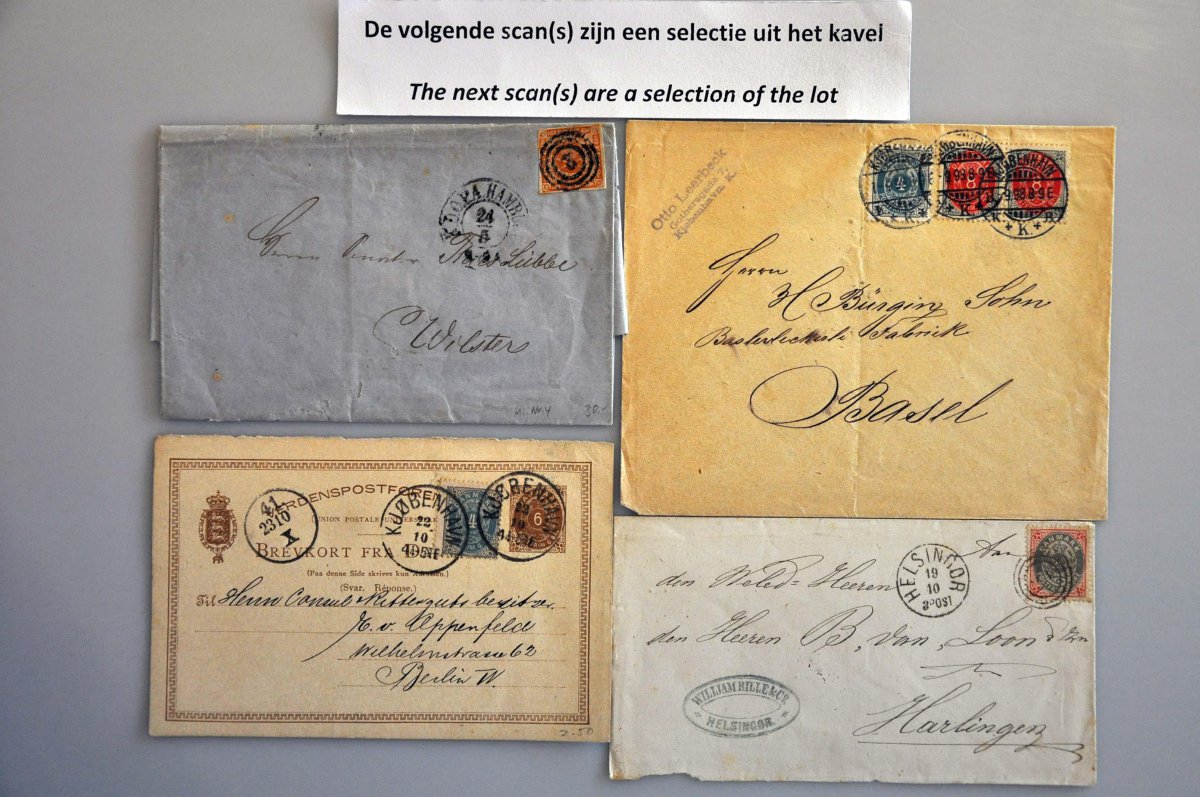 De volgende scan(s) zijn een selectie uit het kavel
The next scan(s) are a selection of the lot
K.D.O.P.A. HAMB
24
5
Herrn
Lübbe
Wilster
30.-
Otto Leerbeck
Kjøbenhavn K.
KJØBENHAVN
4
8
8
98.8-9E
K.
Herrn
H Bürgin Sohn
Fabrik
Basel
VERDENSPOSTFOREN
(UNION POSTALE UNIVERSELLE
BREVKORT FRA
(Paa denne Side skrives kun Adressen.)
(Svar. Réponse.)
41
2310
X
KJØBENHAVN
22
10
4
KJØBENHAVN
6
Til Herrn Consul Rittergutsbesitzer
v. Oppenfeld
Wilhelmstrasse 62
Berlin W.
2.50
HELSINGØR
19
10
3POST
Aan
den Weled. Heeren
den Heeren B. van Loon & Zn
Harlingen
WILLIAM BILLE & Co.
HELSINGØR.